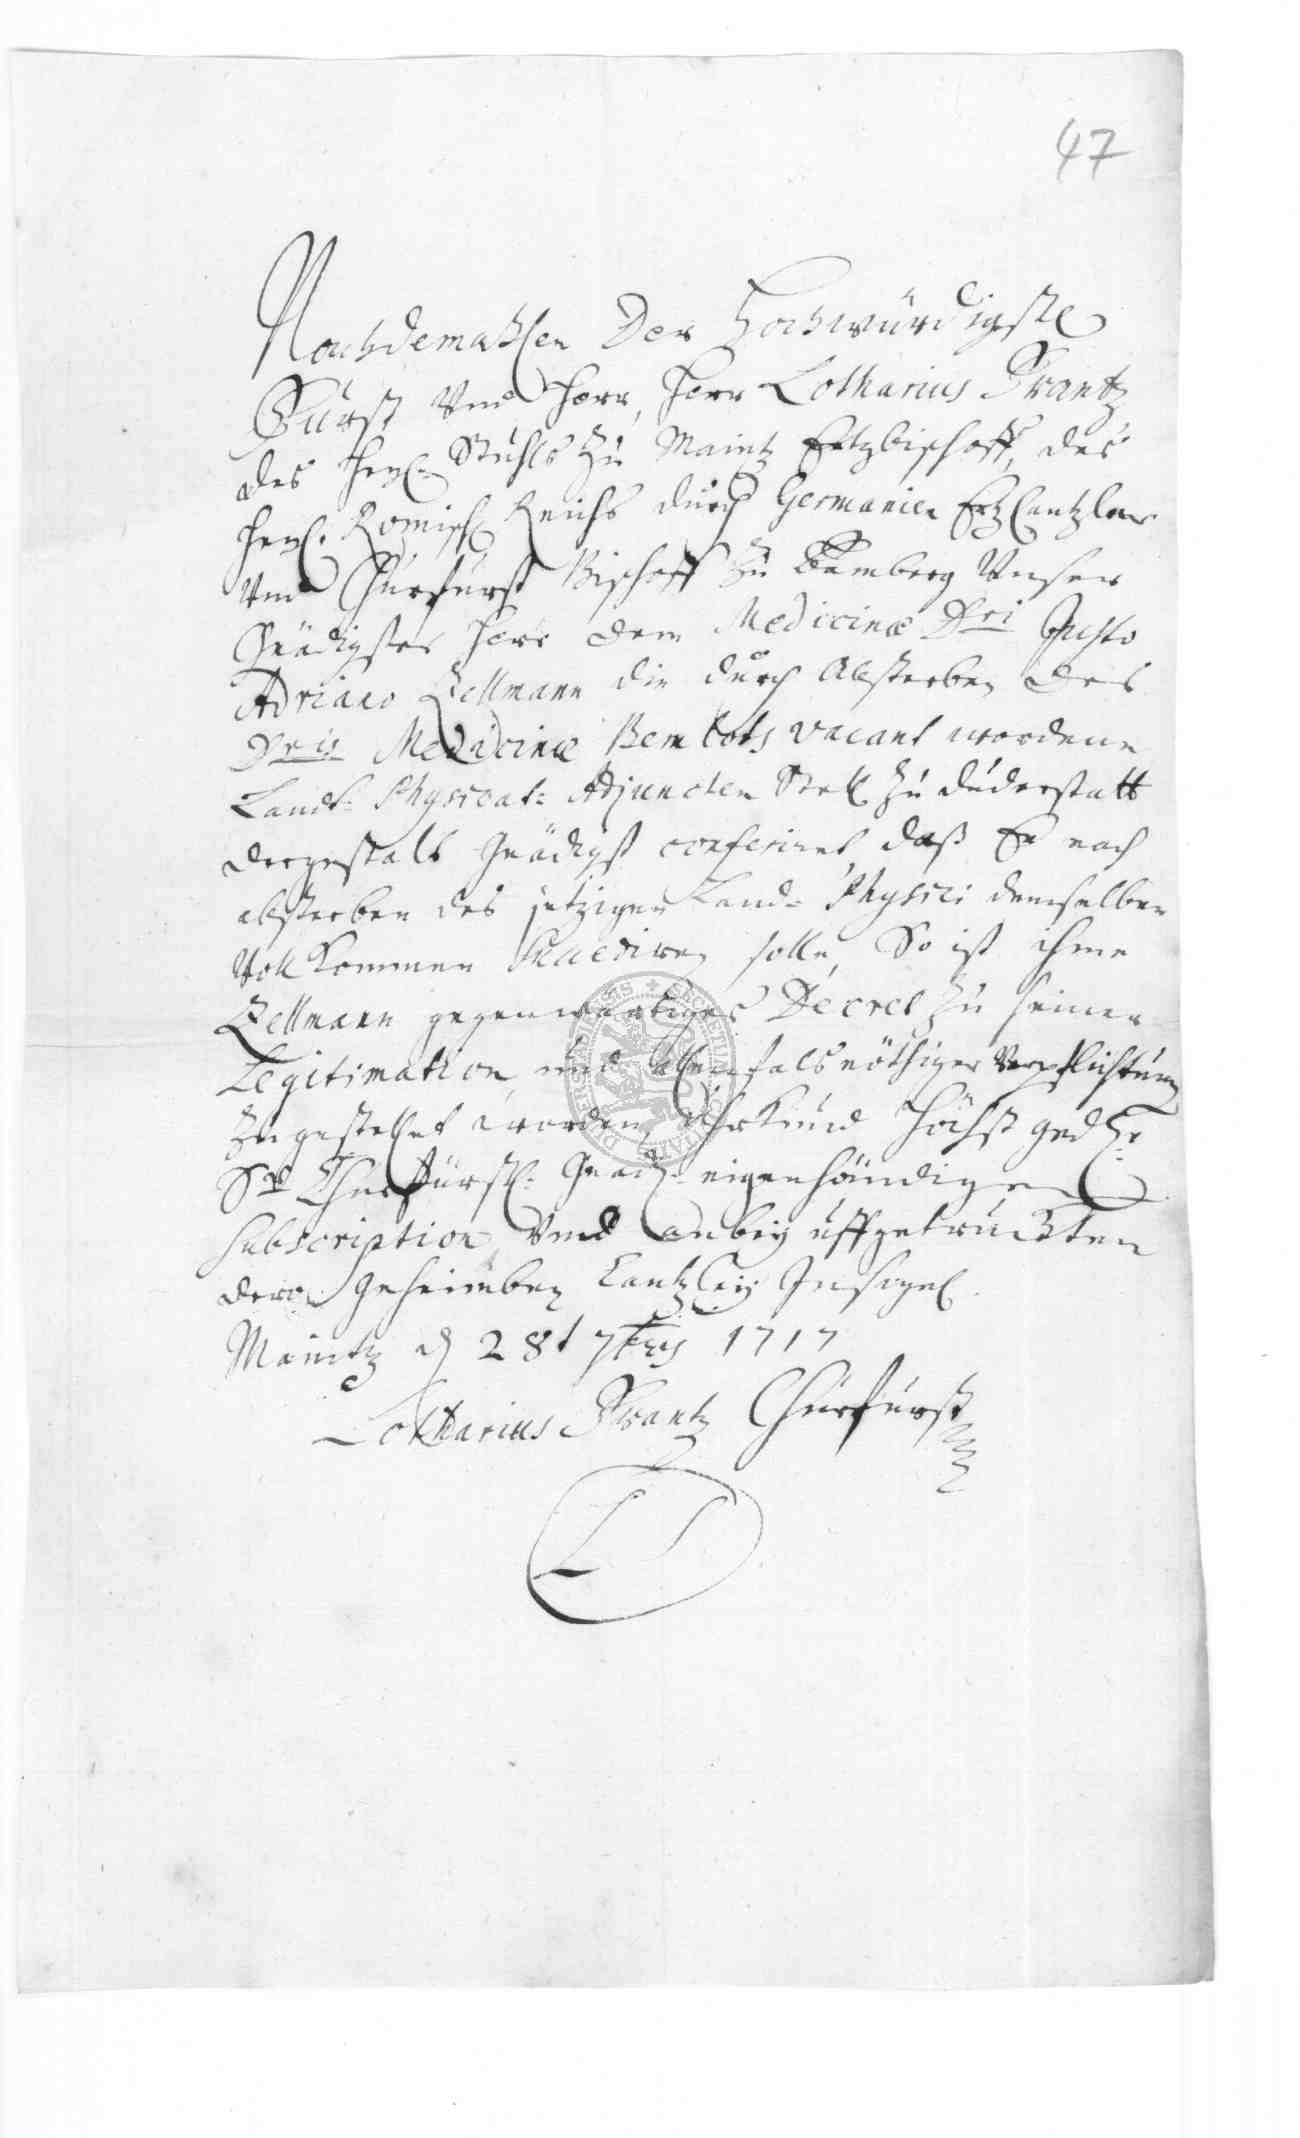 47
Nachdemahlen Der Hochwürdigste
Fürst Vnd Herr, Herr Lotharius Frantz
des Heyl. Stuhls zu Maintz Ertzbischoff, des
Heyl. Römisch Reichs durch Germanien Ertz Cantzler
Vnd Churfürst Bischoff zu Bamberg Unser
Gnädigster Herr dem Medicinæ Dri Justo
Adriano Zellmann die durch Absterben des
Dris Medicinæ vacant wordene
Landt- Physicat- Adjuncten Stell zu duderstatt
dergestalt Gnädigst conferiret, daß Er nach
absterben des jetzigen Land- Physici demselben
Voll Kommen solle, So ist ihme
Zellmann gegenwärtiges Decret zu seiner
Legitimation, und allenfals nöthiger Verpflichtung
zugestellet worden, Uhrkund höchst gedchr
Sr Churfürstl: Gnad: eigenhändiger
subscription, Vnd anbey uffgetruckten
dero Geheimben Cantzley Insigel.
Maintz d 28t 7bris 1717
Lotharius Frantz Churfürst
L S